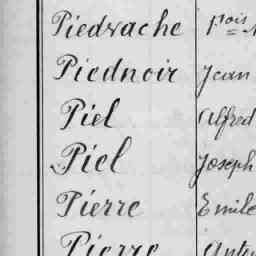 Piedvache fçois
Piednoir Jean
Piel Alfred
Piel Joseph
Pierre Emile
Pierre